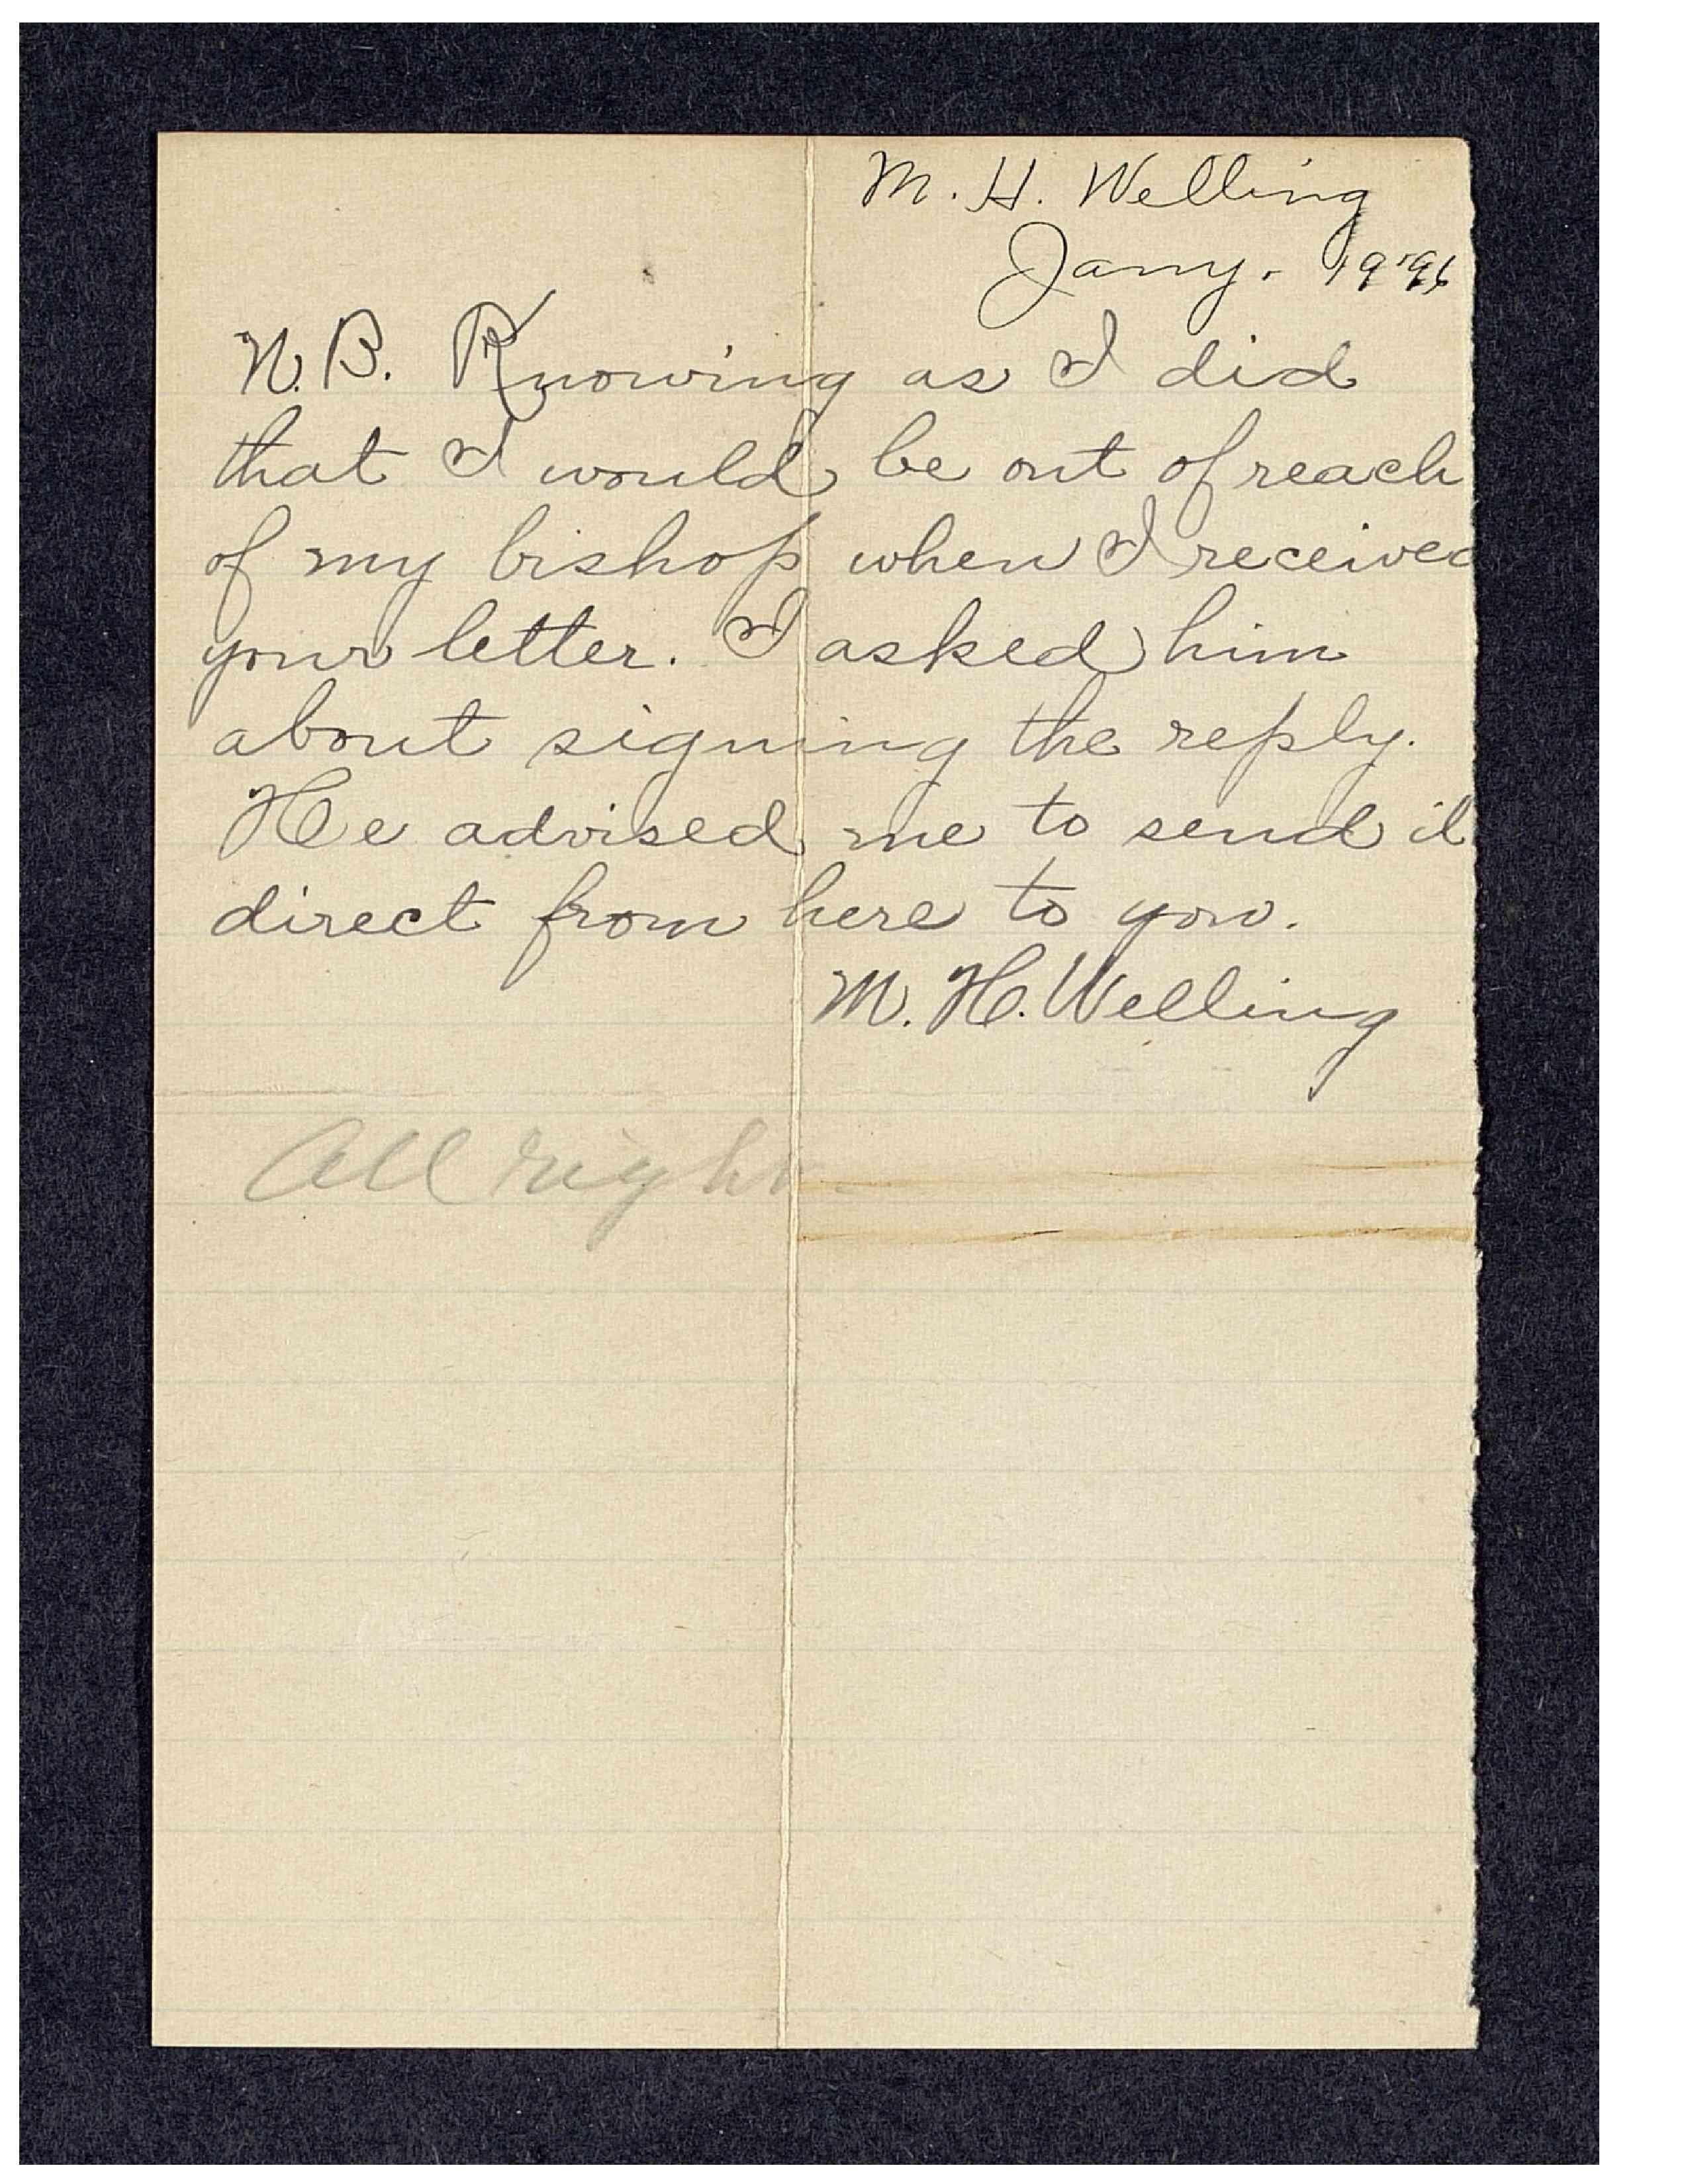 M. H. Welling
Jany. 19 '96
N.B. Knowing as I did
that I would be out of reach
of my bishop when I received
your letter. I asked him
about signing the reply.
He advised me to send it
direct from here to you.
M. H. Welling
All right.